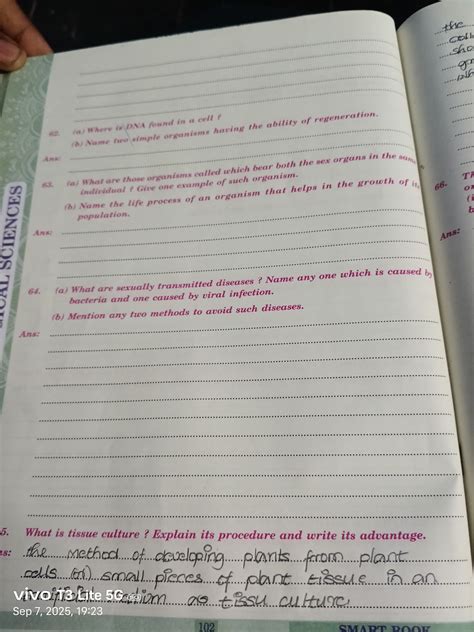 62. (a) Where is DNA found in a cell ?
(b) Name two simple organisms having the ability of regeneration.
Ans:
63. (a) What are those organisms called which bear both the sex organs in the same
individual ? Give one example of such organism.
(b) Name the life process of an organism that helps in the growth of its
population.
Ans:
64. (a) What are sexually transmitted diseases ? Name any one which is caused by
bacteria and one caused by viral infection.
(b) Mention any two methods to avoid such diseases.
Ans:
5. What is tissue culture ? Explain its procedure and write its advantage.
ns: the method of developing plants from plant
cells (or) small pieces of plant tissue in an
as tissu culture
vivo T3 Lite 5G
Sep 7, 2025, 19:23
102
SMART BOOK
GICAL SCIENCES
the
66.
Ans: